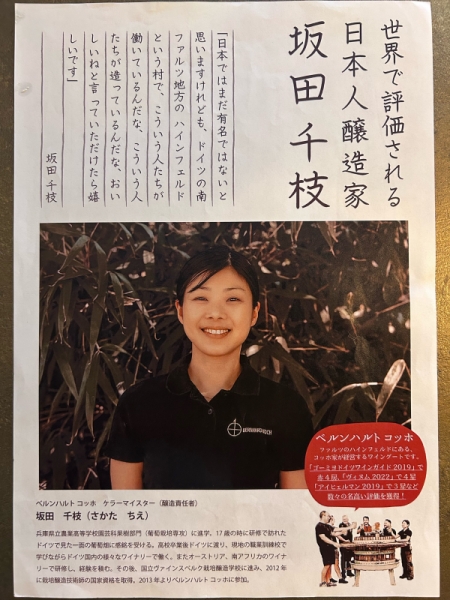 世界で評価される
日本人醸造家
坂田 千枝
「日本ではまだ有名ではないと
思いますけれども、ドイツの南
ファルツ地方のハインフェルド
という村で、こういう人たちが
働いているんだな、こういう人
たちが造っているんだな、おい
しいねと言っていただけたら嬉
しいです」
坂田 千枝
ベルンハルト コッホ
ファルツのハインフェルドにある、
コッホ家が経営するワインゲートです。
「ゴーミヨドイツワインガイド2019」で
赤4房、「ヴィヌム2022」で4星
「アイヒェルマン2019」で3星など
数々の名高い評価を獲得！
ベルンハルト コッホ　ケラーマイスター（醸造責任者）
坂田　千枝（さかた　ちえ）
兵庫県立農業高等学校園芸科果樹部門（葡萄栽培専攻）に進学。17歳の時に研修で訪れた
ドイツで見た一面の葡萄畑に感銘を受ける。高校卒業後ドイツに渡り、現地の職業訓練校で
学びながらドイツ国内の様々なワイナリーで働く。またオーストリア、南アフリカのワイナ
リーで研修し、経験を積む。その後、国立ヴァインスベルク栽培醸造学校に進み、2012年
に栽培醸造技術師の国家資格を取得。2013年よりベルンハルトコッホに参加。